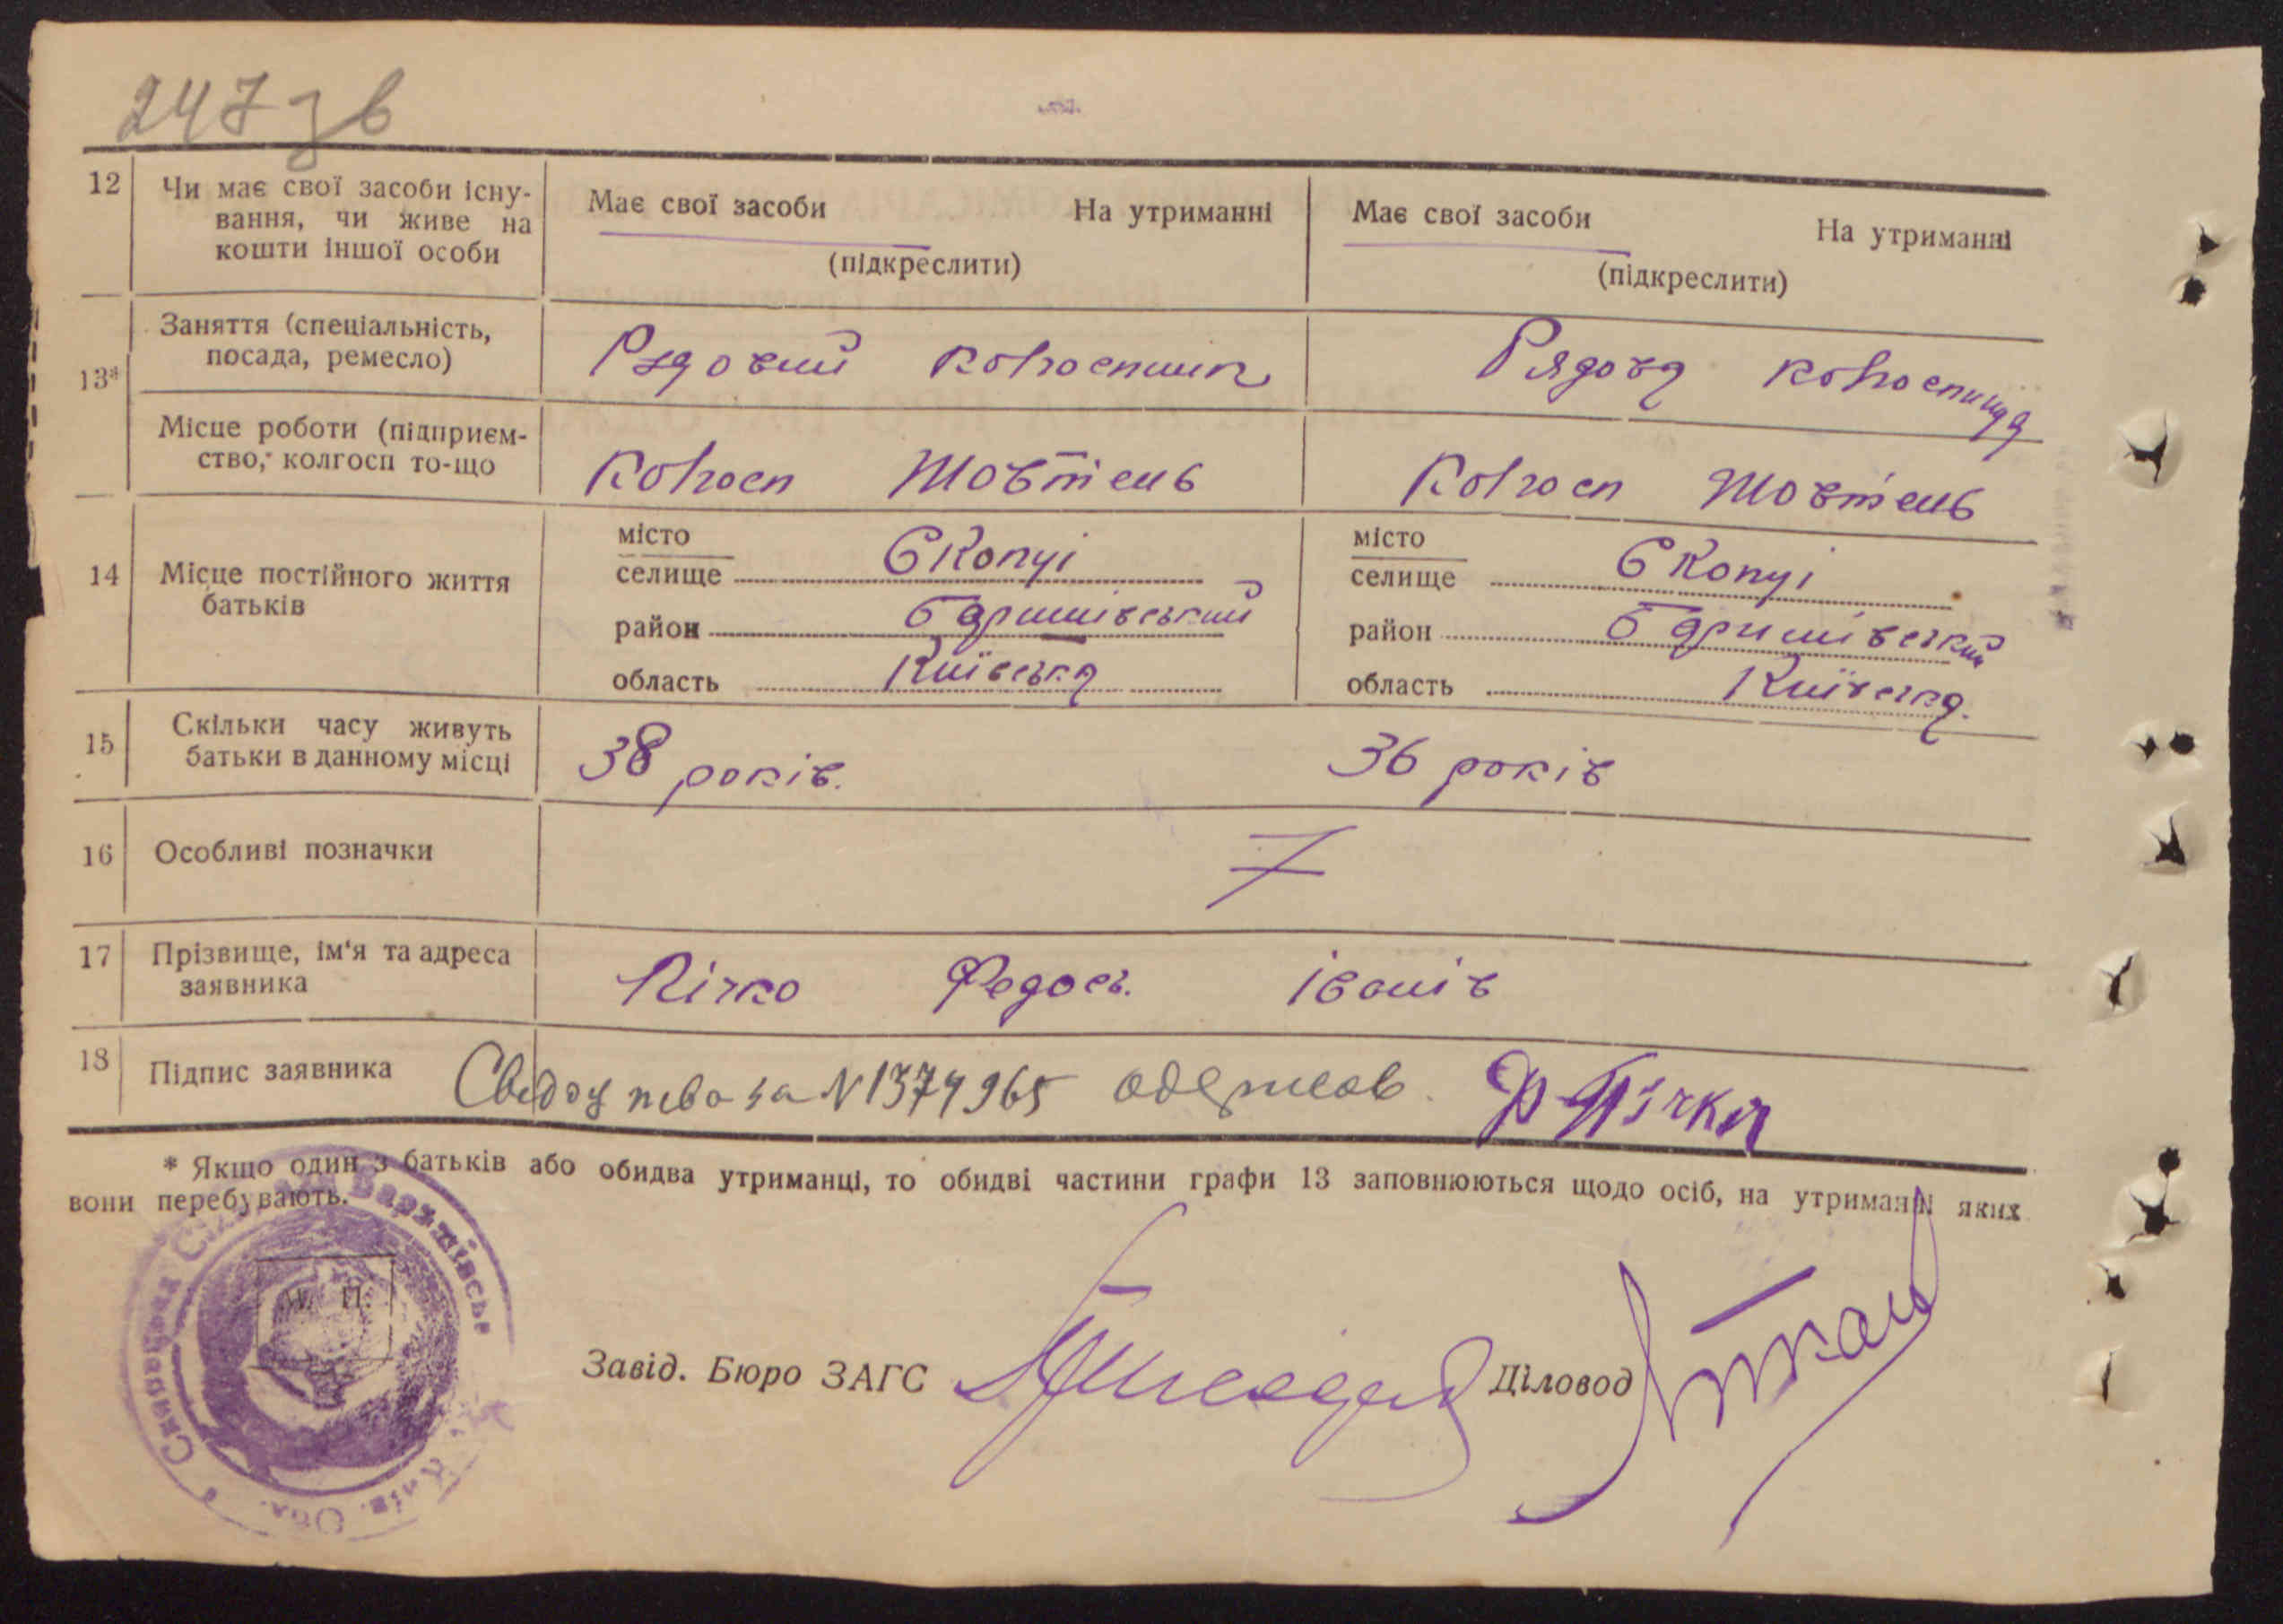 247 зв
12 Чи має свої засоби існу-
вання, чи живе на
кошти іншої особи
Має свої засоби На утриманні
(підкреслити)
Має свої засоби На утриманні
(підкреслити)
13* Заняття (спеціальність,
посада, ремесло)
Рядовий колгоспник
Рядова колгоспниця
Місце роботи (підприєм-
ство, колгосп то-що
Колгосп Жовтень
Колгосп Жовтень
14 Місце постійного життя
батьків
місто
селище С Копчі
район Баришівський
область Київська
місто
селище С Копчі
район Баришівський
область Київська.
15 Скільки часу живуть
батьки в данному місці
38 років.
36 років
16 Особливі позначки
17 Прізвище, ім'я та адреса
заявника
Лічко Федось. Іванів
18 Підпис заявника
за N 1374965 одержав.
* Якщо один з батьків або обидва утриманці, то обидві частини графи 13 заповнюються щодо осіб, на утриманні яких
вони перебувають.
М. П.
Київ. Обл.
Завід. Бюро ЗАГС
Діловод